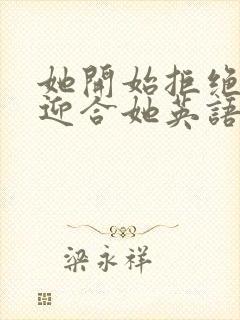 她開始拒絕
迎合她英語
梁永祥